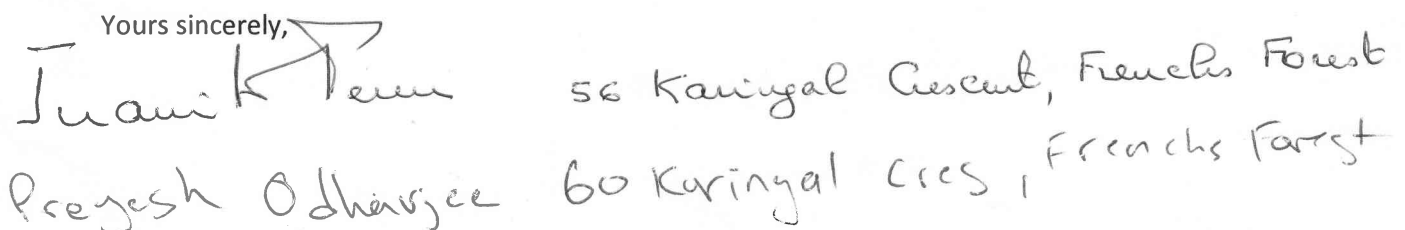 Yours sincerely,
56 Karingal Crescent, Frenchs Forest
Pregesh Odharjee 60 Karingal Cres, Frenchs Forest